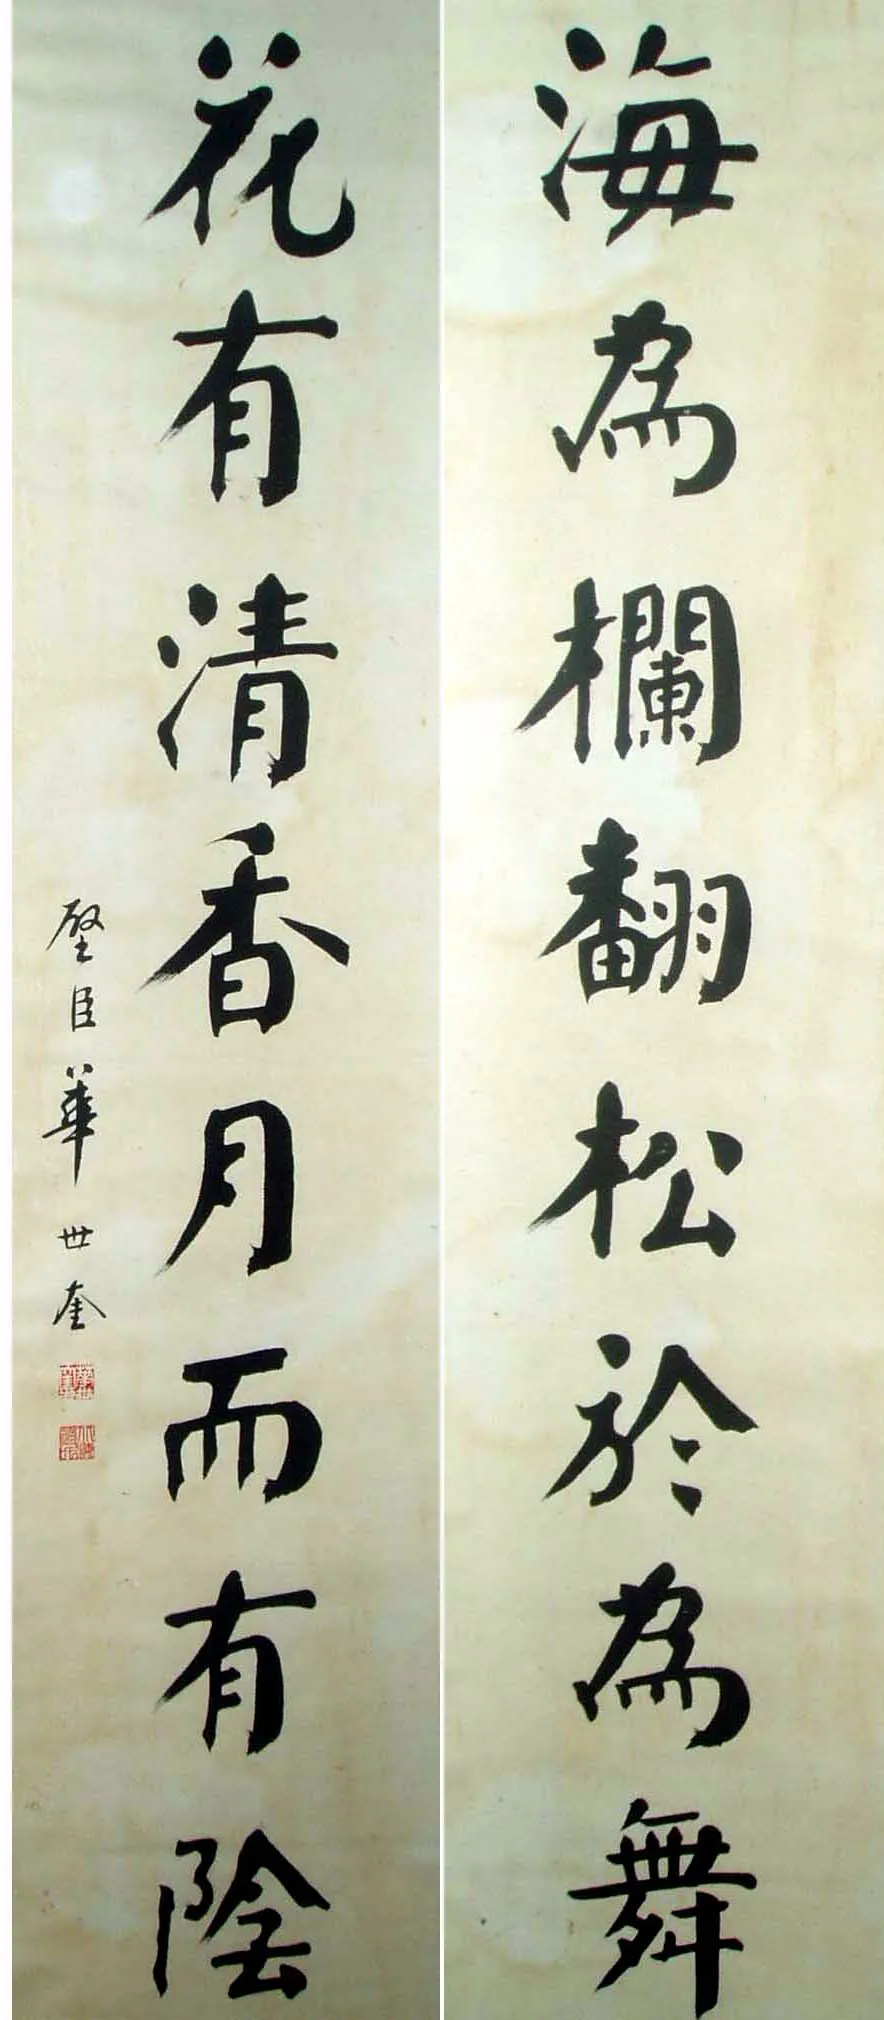 海為欄翻松於為舞
花有清香月而有陰
壁臣華世奎